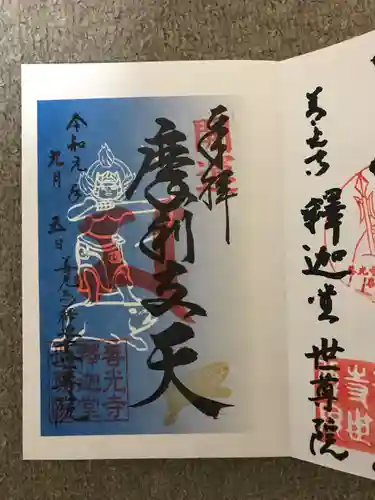 奉拝
摩利支天
令和元年
九月
五日
善光寺釋迦堂世尊院
善光寺
釋迦堂
善光寺 釋迦堂 世尊院